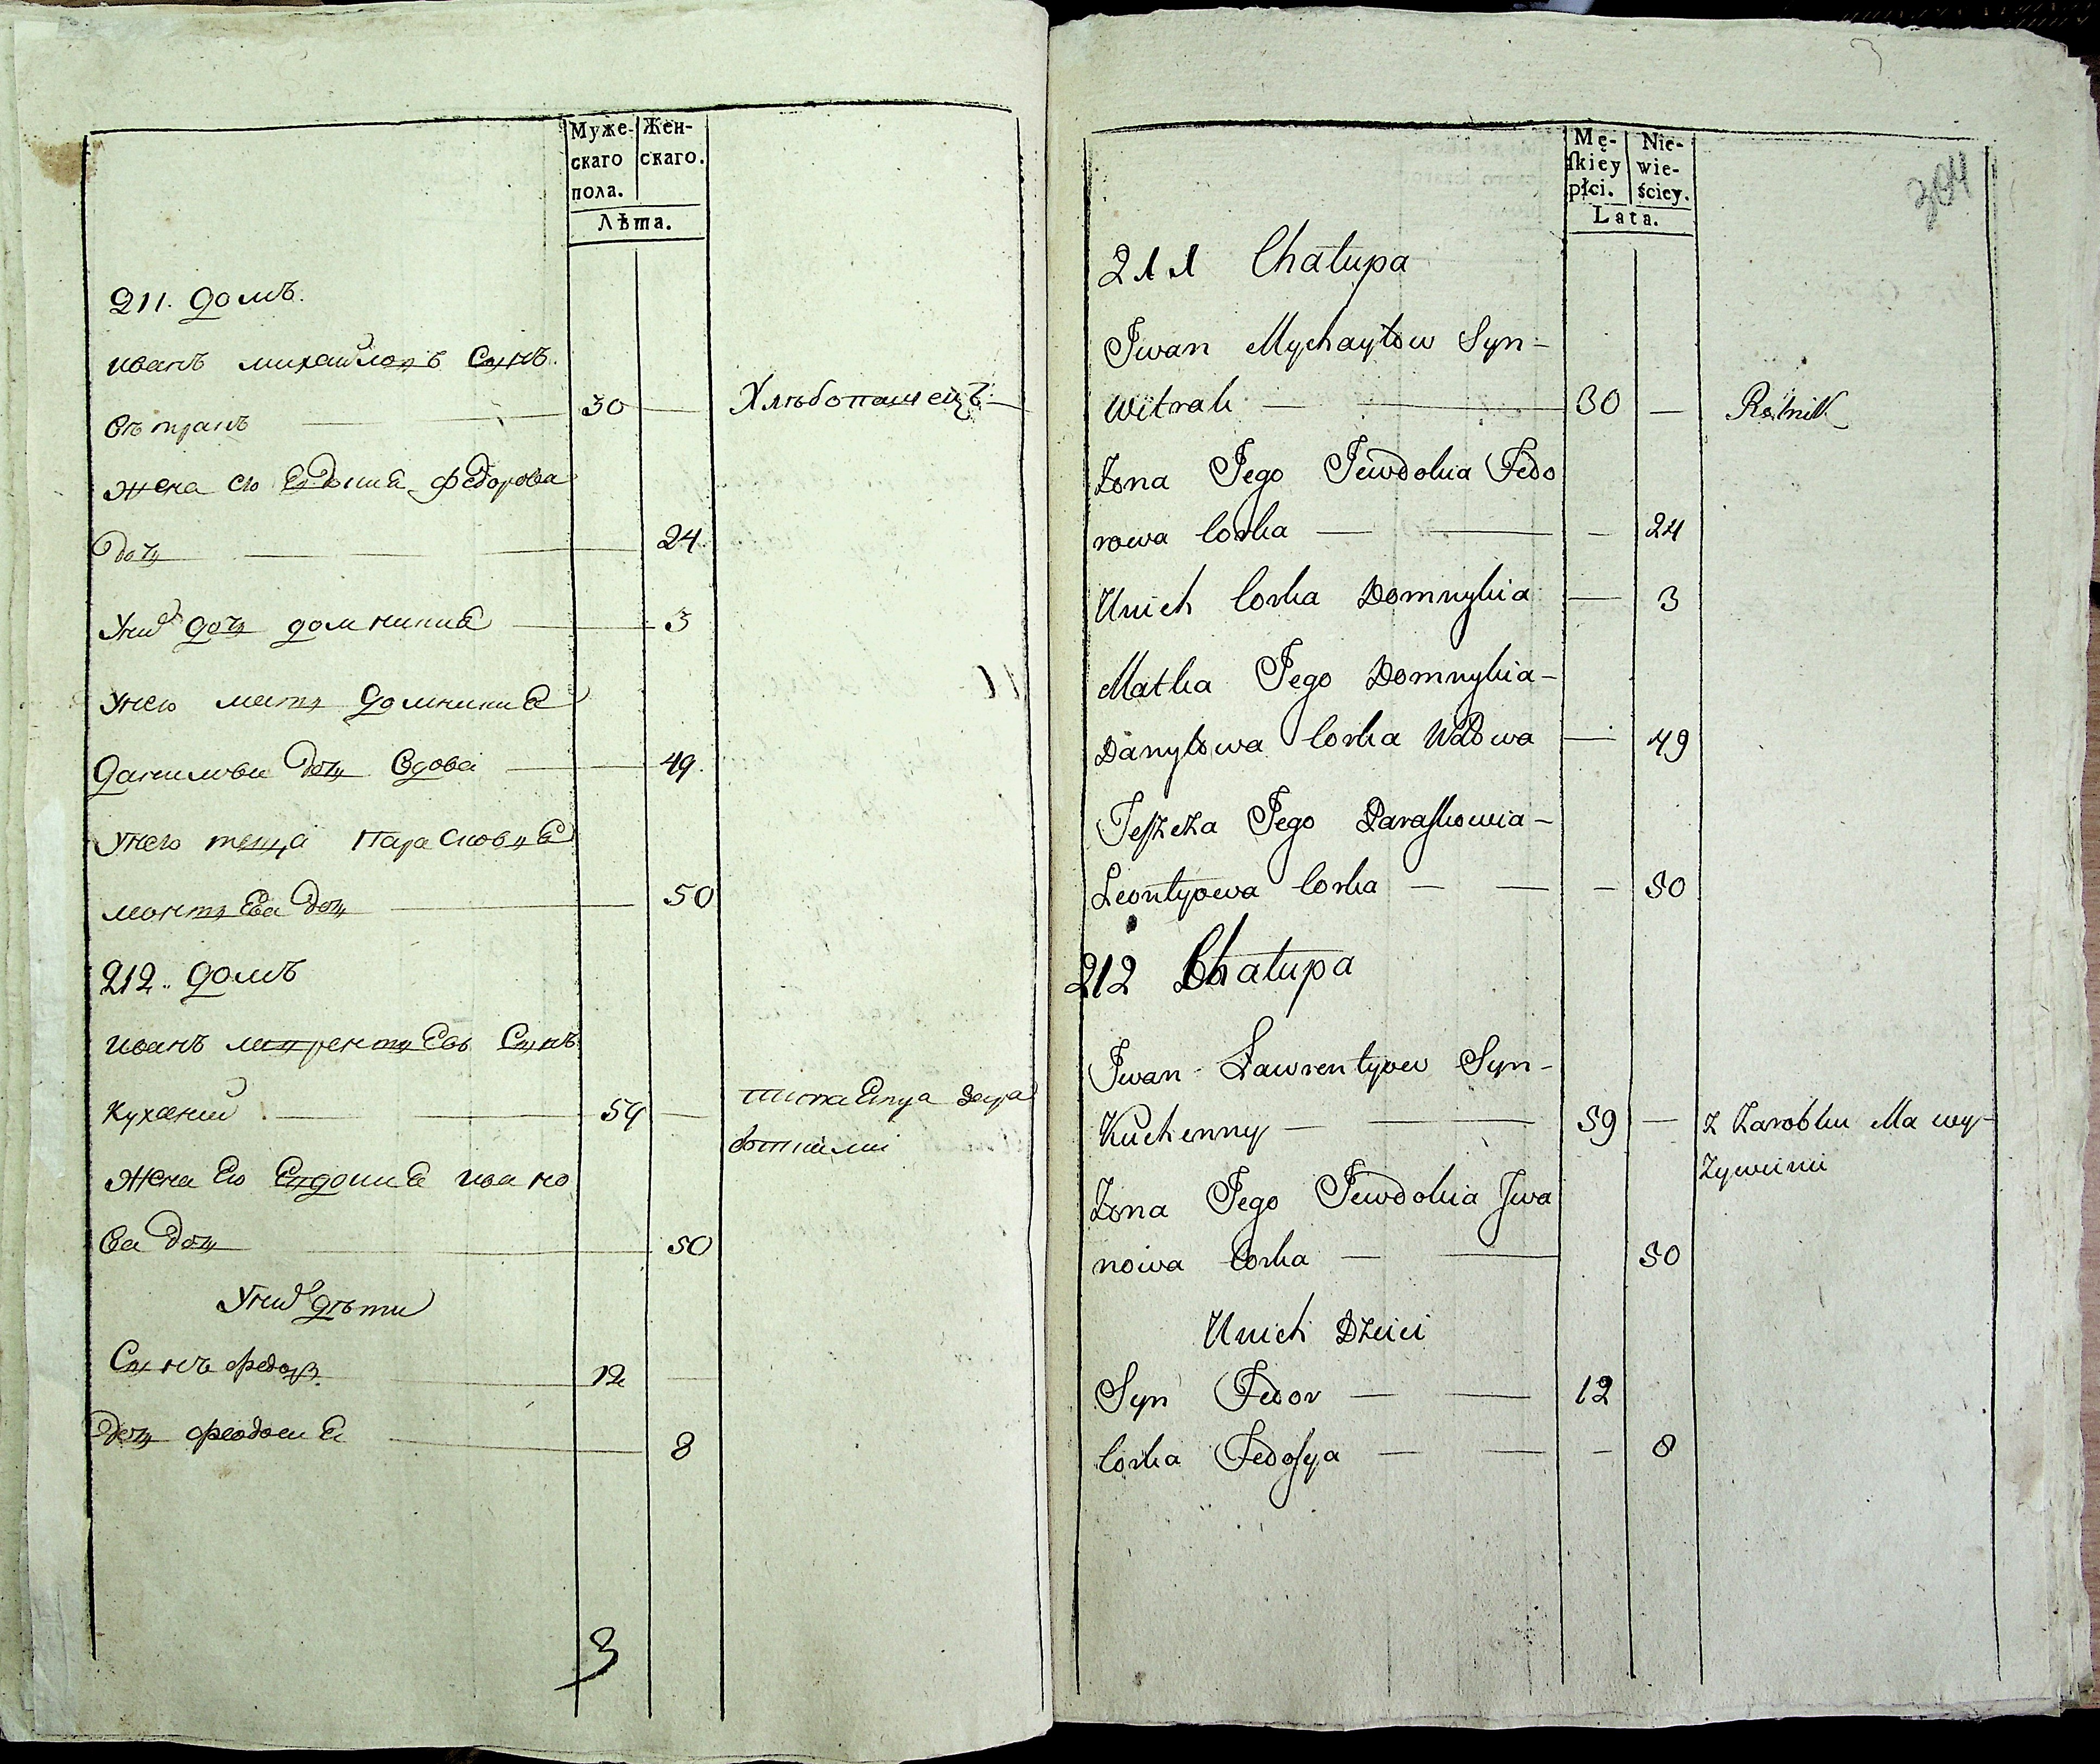 Муже-
скаго
пола.
Жен-
скаго.
Лѣта.
211. домъ.
иванъ михайловъ Сынъ.
вѣтракъ — 30 — Хлѣбопашецъ —
жена его Евдокия федорова
дочь — 24
Унихъ дочь домникия — 3
Унего мать домникия
данилова дочь вдова — 49.
Унего теща Парасковия
леонтьева дочь — 50
212. домъ
иванъ лаврентьевъ Сынъ
Кухений — 59 —
жена его Евдокия ивано
ва дочь — 50
Унихъ дѣти
Сынъ федоръ — 12 —
дочь феодосия — 8
3
304
Mę-
ſkiey
płci.
Nie-
wie-
ściey.
Lata.
211 Chałupa
Jwan Mychayłow Syn -
Witrak — 30 — Rolnik
Zona Jego Jewdokia Fedo
rowa Corka — — - 24
Unich Corka Domnykia — 3
Matka Jego Domnykia -
Danyłowa Corka Wdowa — 49
Teſzcza Jego Paraſkowia -
Leontyowa Corka — — - 50
212 Chałupa
Jwan Ławrentyow Syn -
Kuchenny — — 59 — Z Zarobku Ma wy-
Zywieni
Zona Jego Jewdokia Jwa
nowa Corka — — 50
Unich Dzieci
Syn Fedor — — 12
Corka Fedoſya — — - 8